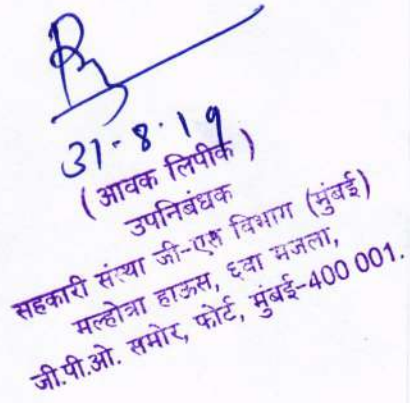 31-8-19
( आवक लिपीक )
उपनिबंधक
सहकारी संस्था जी-एस विभाग (मुंबई)
मल्होत्रा हाऊस, ६वा मजला,
जी.पी.ओ. समोर, फोर्ट, मुंबई-400 001.